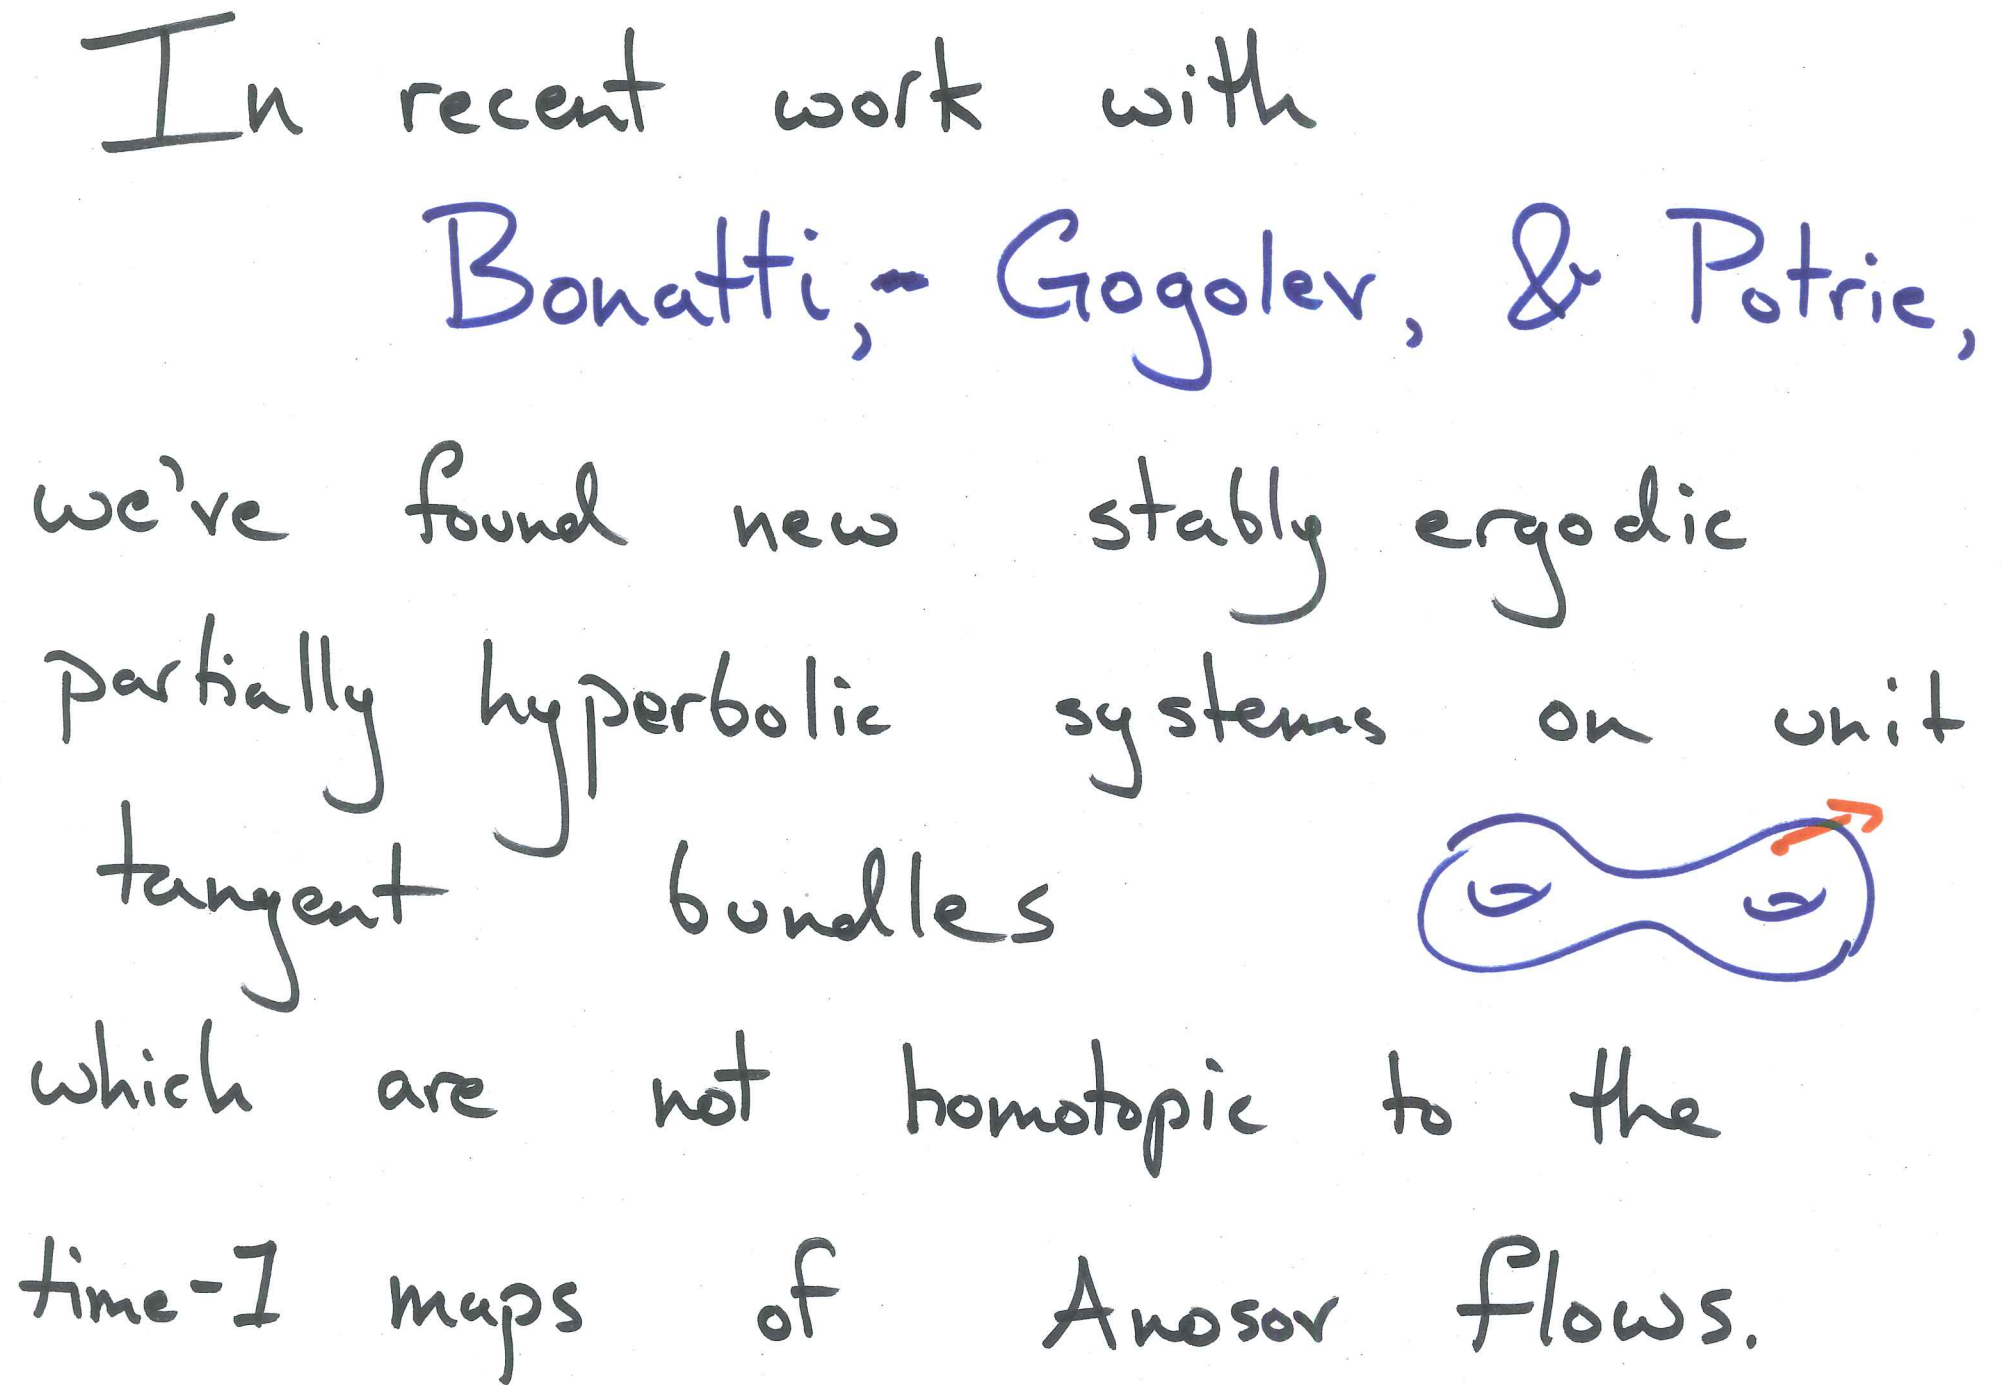 In recent work with
Bonatti, - Gogolev, & Potrie,
we've found new stably ergodic
partially hyperbolic systems on unit
tangent bundles
which are not homotopic to the
time-1 maps of Anosov flows.